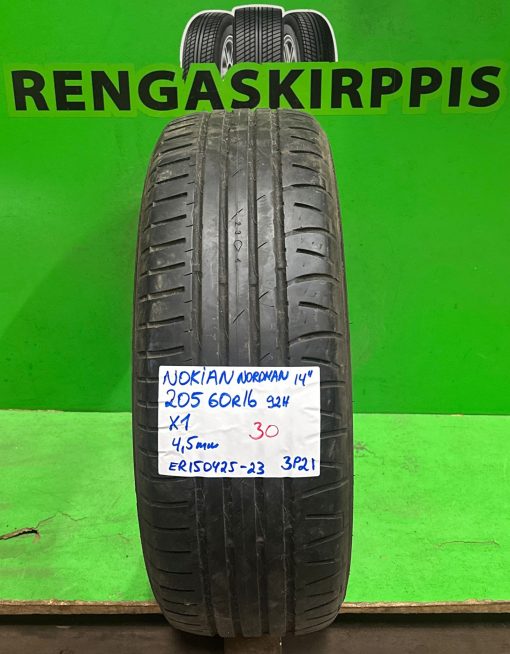 RENGASKIRPPIS
NOKIAN NORDMAN 14"
205 60R16 92H
X1
30
4,5mm
ER150425-23 3P21